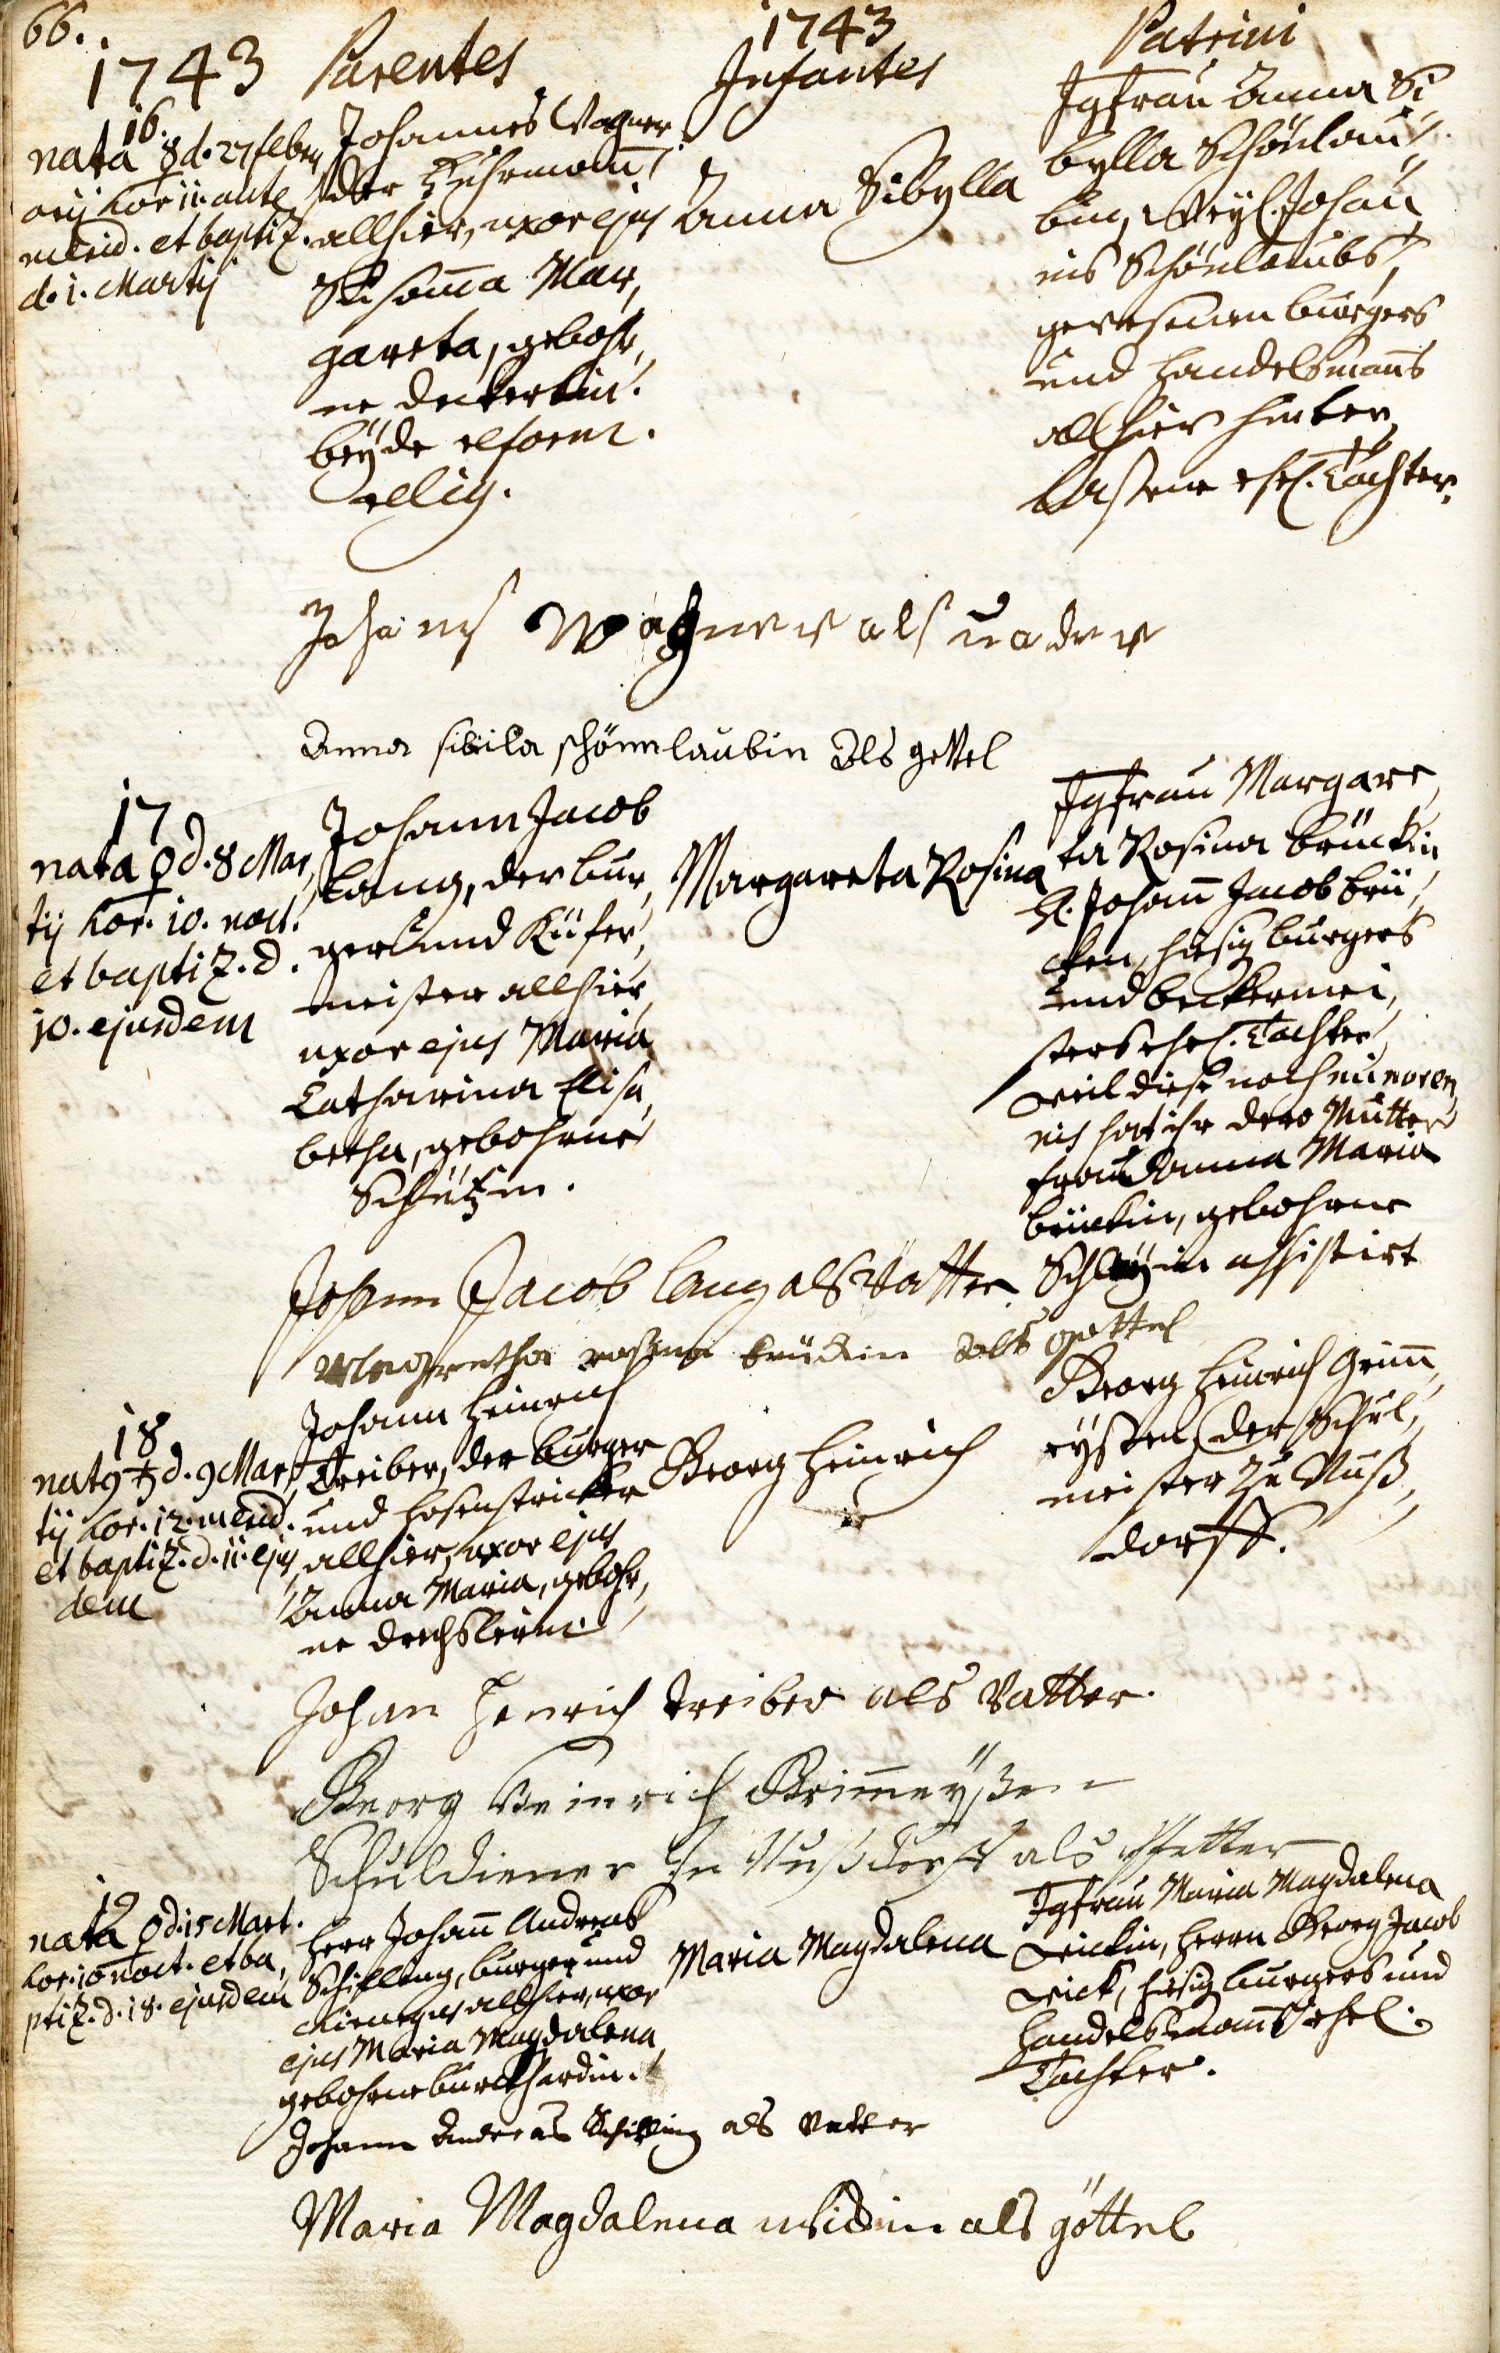 66.
1743 Parentes
1743
Infantes
Patrini
16.
nata ☿ d. 27 febru
arij hor. 11. ante
merid. et baptiz.
d. 1. Martij
Johannes Wagner
der Fuhrmann
allhier, uxor ejus
Susanna Mar,
gareta, gebohr,
ne deckerlin.
beÿde reform.
Relig.
Anna Sibylla
Jgfrau Anna Si
bylla Schönlau,
bin, Weyl. Johan,
nis Schönlaubs,
gewesenen burgers
und handelsmanns
allhier hinter,
laßene ehel. Tochter.
Johans Wagner als vader
Anna sibila schönnlaubin Als gettel
17
nata ♀ d. 8 Mar,
tij hor. 10. noct.
et baptiz. d.
10. ejusdem
Johann Jacob
Lang, der bur,
ger und Küfer,
meister allhier,
uxor ejus Maria
Catharina Elisa,
betha, gebohrne
Schützin.
Margareta Rosina
Jgfrau Margare,
ta Rosina brückin
H. Johann Jacob brü,
cken, hiesig burgers
und beckermei,
sters ehel. Tochter,
weil diese noch minoren
nis hat ihr dero Mutter
frau Anna Maria
brückin, gebohrne
assistirt
Johann Jacob Lang als Vatter
Margretha rosina brückin als gettel
18
nat9 ♄ d. 9 Mar,
tij hor. 12. merid.
et baptiz. d. 11. ejus
dem
Johann Heinrich
Treiber, der burger
und hosenstricker
allhier, uxor ejus
Anna Maria, gebohr,
ne drechslerin
Georg Heinrich
Georg Heinrich Grim,
eyßen, der Schul,
meister zu Nuß,
dorff.
Johan Henrich Treiber als Vatter.
Georg Heinrich Grimeÿßen
Schuldiener In Nußdorff als Pfetter
19
nata ♀ d. 15 Mart.
hor. 10 noct. et ba,
ptiz. d. 18. ejusdem
Herr Johann Andreas
Schilling, burger und
Chirurgus allhier, uxor
ejus Maria Magdalena
gebohrne burckhardin.
Maria Magdalena
Jgfrau Maria Magdalena
Wickin, Herrn Georg Jacob
Wick, hiesig burgers und
Handelsmanns ehel.
Tochter.
Johann Andreas Schilling als Vatter
Maria Magdalena wickin als göttel